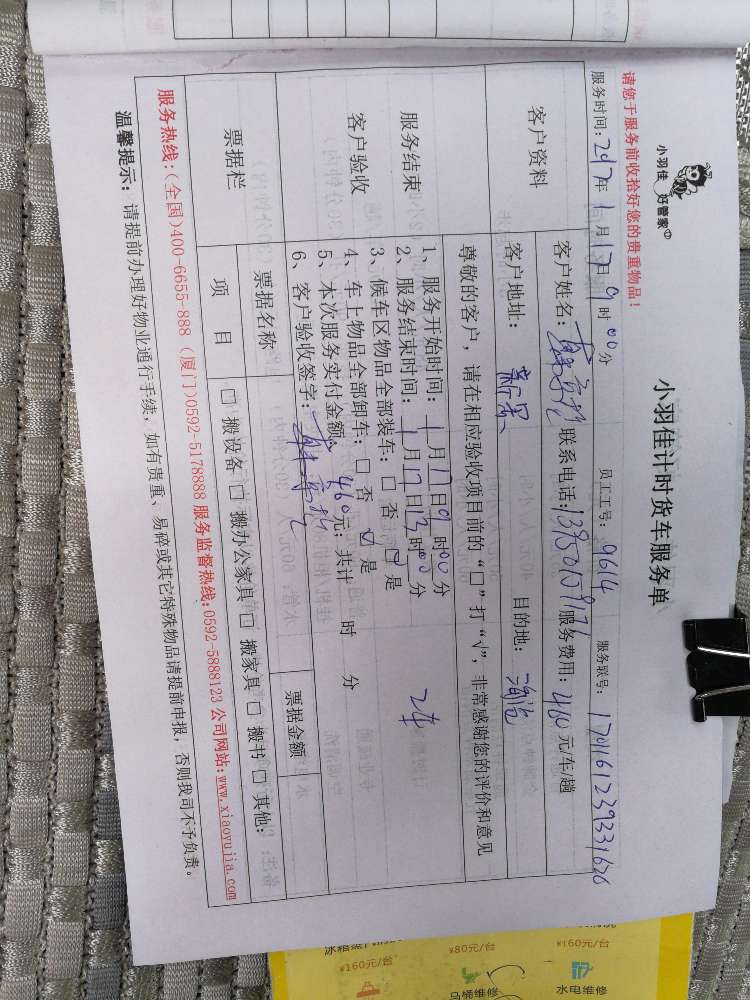 小羽佳 好管家
小羽佳计时货车服务单
请您于服务前收拾好您的贵重物品!
服务时间: 2017年1月17日9时00分 员工工号: 9614 服务联号: 170161239331620
客户资料
客户姓名: 联系电话: 服务费用: 460元/车/趟
客户地址: 新景 目的地:
服务结束
客户验收
尊敬的客户,请在相应验收项目前的“□”打“√”,非常感谢您的评价和意见
1、服务开始时间: 1月17日9时00分
2、服务结束时间: 1月17日13时00分
3、候车区物品全部装车: □否 ☑是
4、车上物品全部卸车: □否 ☑是
5、本次服务实付金额: 460元; 共计 时 分
6、客户验收签字:
2车
票据栏
票据名称 票据金额
项目 □搬设备 □搬办公家具 □搬家具 □搬书 □其他:
服务热线:(全国)400-6655-888 (厦门)0592-5178888 服务监督热线:0592-5888123 公司网站:www.xiaoyujia.com
温馨提示: 请提前办理好物业通行手续,如有贵重、易碎或其它特殊物品请提前申报,否则我司不予负责。
¥80元/台
¥160元/台
¥160元/台
马桶维修
水电维修